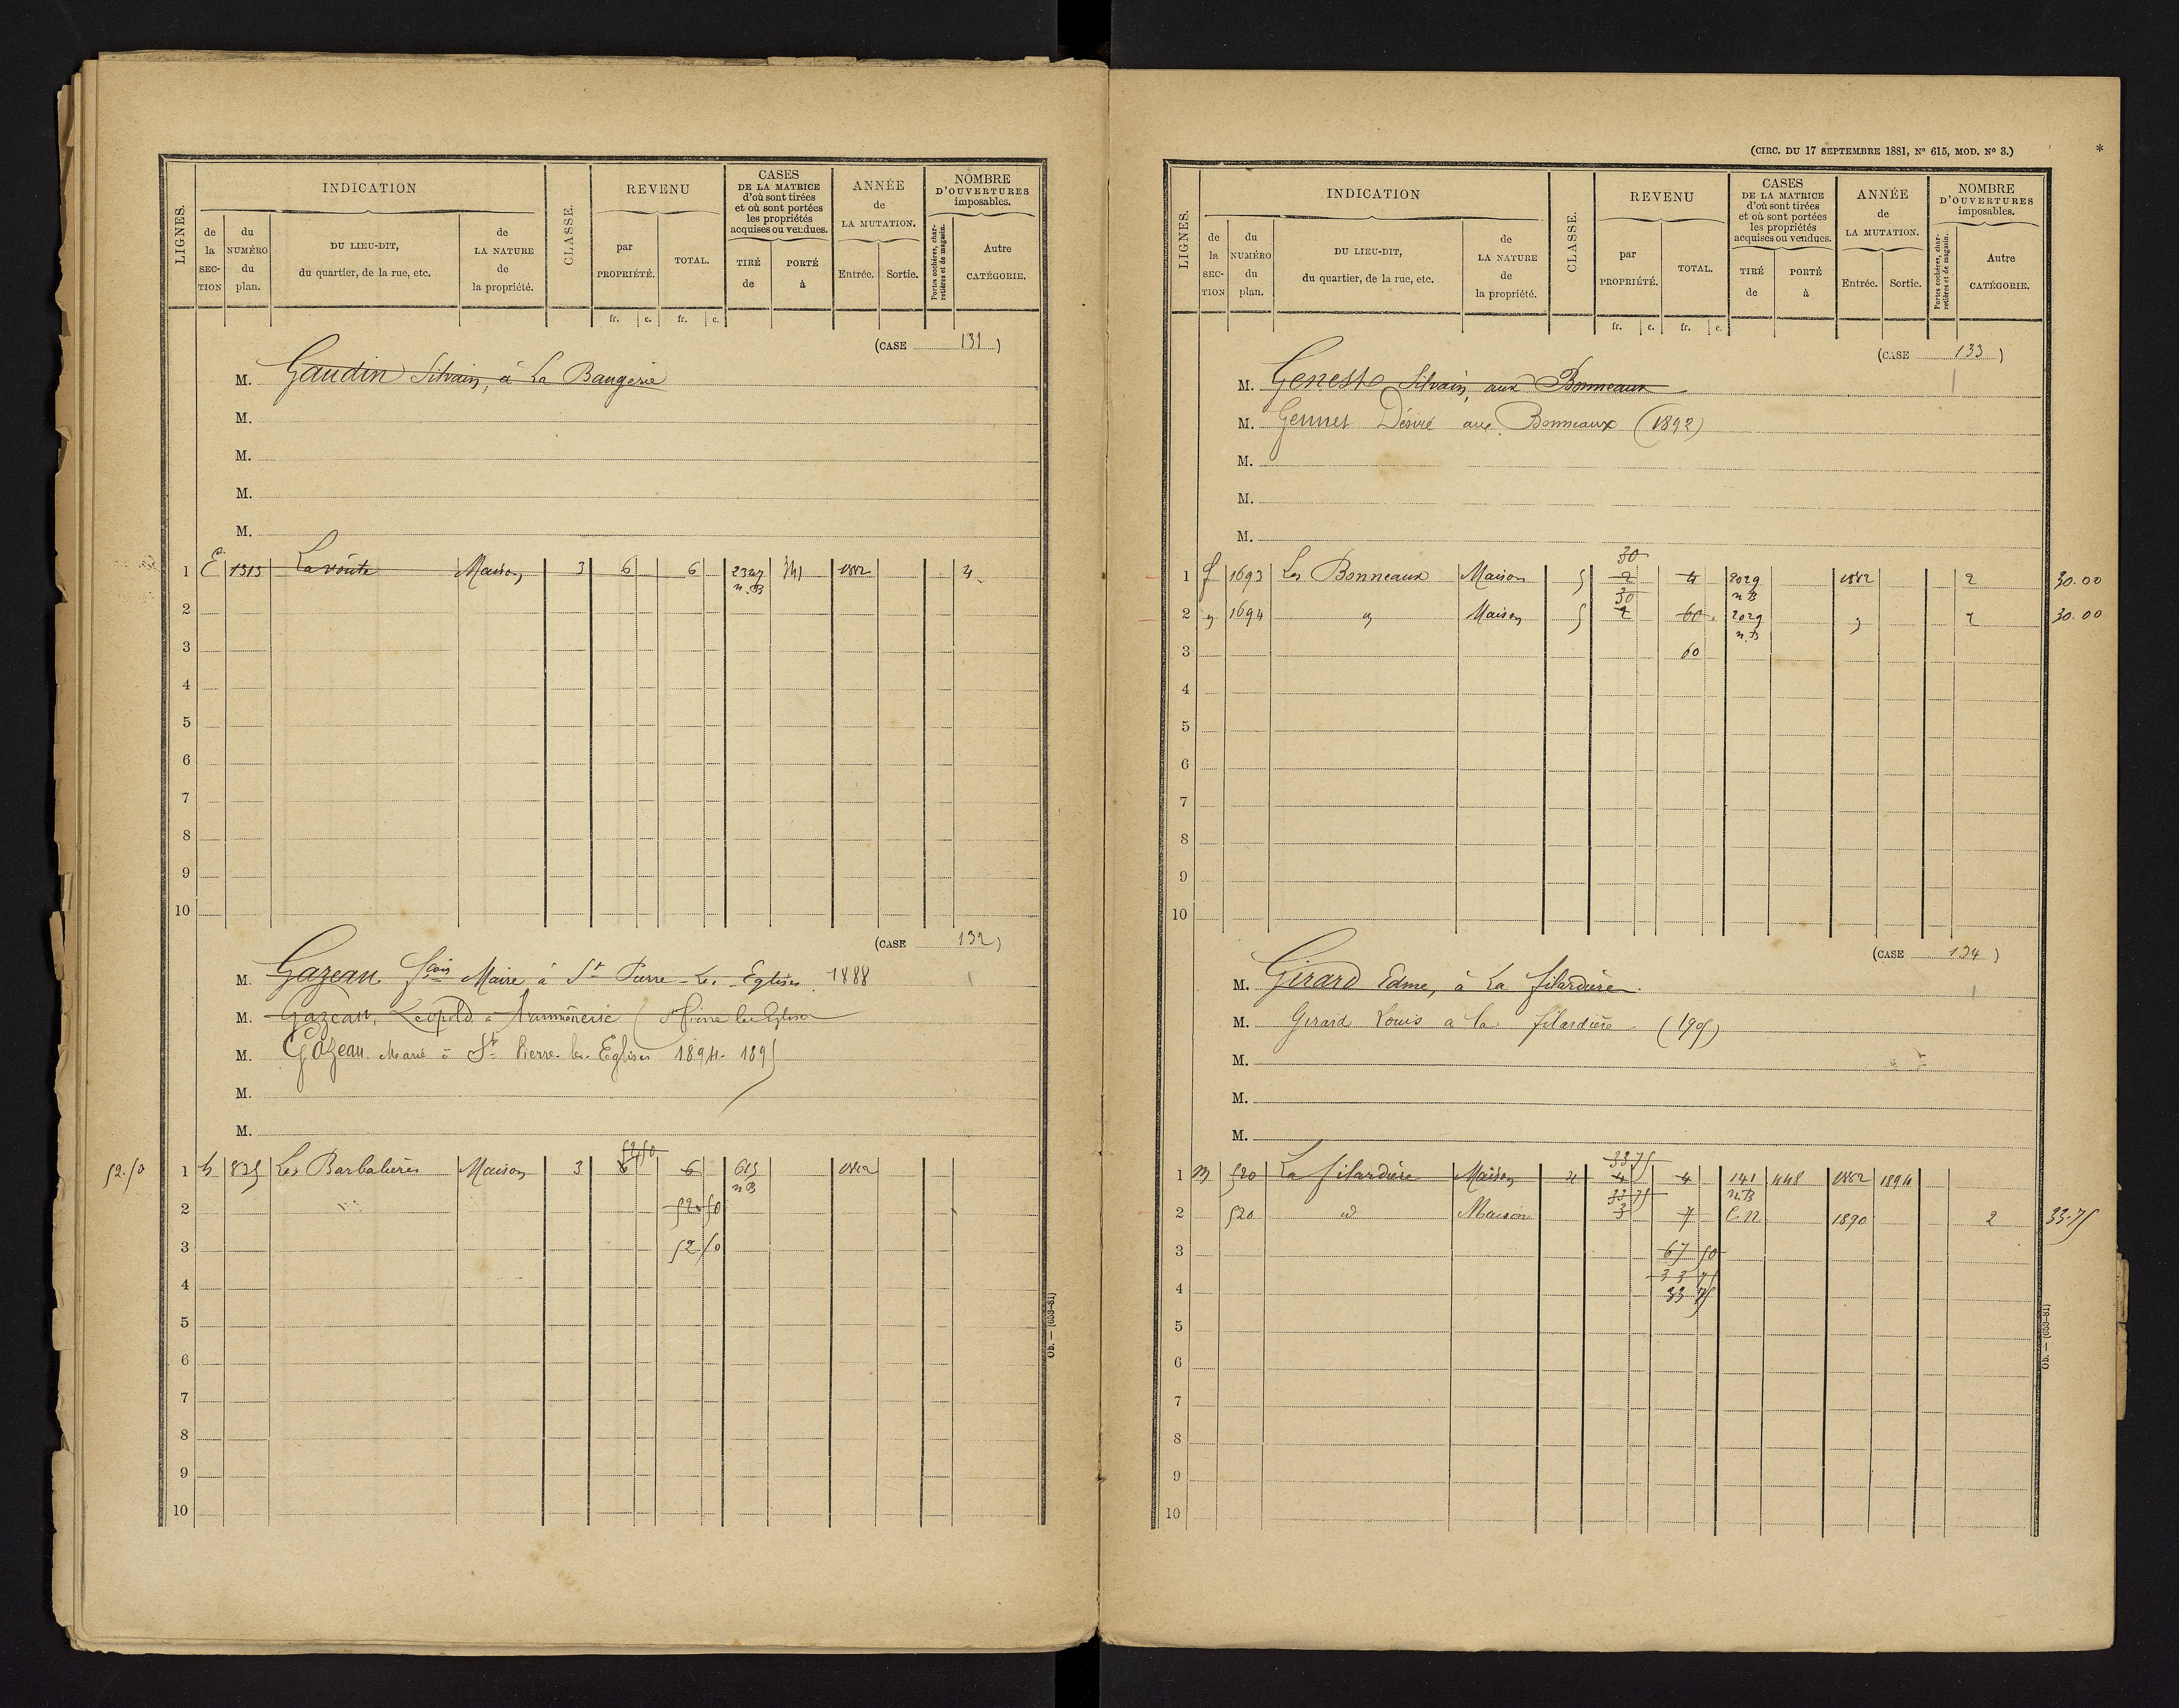 LIGNES.
INDICATION
de la SECTION
du NUMÉRO du plan.
DU LIEU-DIT, du quartier, de la rue, etc.
de LA NATURE de la propriété.
CLASSE.
REVENU
par PROPRIÉTÉ.
TOTAL.
fr. c. fr. c.
CASES DE LA MATRICE d'où sont tirées et où sont portées les propriétés acquises ou vendues.
TIRÉ de
PORTÉ à
ANNÉE de LA MUTATION.
Entrée. Sortie.
NOMBRE D'OUVERTURES imposables.
Portes cochères, charretières et de magasin.
Autre CATÉGORIE.
(CASE 131)
M. Gaudin Silvain, à La Baugerie
M.
M.
M.
M.
1 E 1515 La voûte Maison 3 6 6 1882 4
2
3
4
5
6
7
8
9
10
(CASE 132)
M. Gazeau Maire à St Pierre-Les-Eglises 1888
M. Gazeau, Léopold St Pierre les Eglises
M. Gazeau Marie à St Pierre-les-Eglises 1894-1895
M.
M.
52.50 1 h 825 Les Barbalières Maison 3 6 6 615 n B 1882
2 52 50
3 52 50
4
5
6
7
8
9
10
Ob. — (653-81)
(CIRC. DU 17 SEPTEMBRE 1881, No 615, MOD. No 3.)
*
LIGNES.
INDICATION
de la SECTION
du NUMÉRO du plan.
DU LIEU-DIT, du quartier, de la rue, etc.
de LA NATURE de la propriété.
CLASSE.
REVENU
par PROPRIÉTÉ.
TOTAL.
fr. c. fr. c.
CASES DE LA MATRICE d'où sont tirées et où sont portées les propriétés acquises ou vendues.
TIRÉ de
PORTÉ à
ANNÉE de LA MUTATION.
Entrée. Sortie.
NOMBRE D'OUVERTURES imposables.
Portes cochères, charretières et de magasin.
Autre CATÉGORIE.
(CASE 133)
M. Silvain, aux Bonneaux
M. Désiré aux Bonneaux (1892)
M.
M.
M.
30
1 f 1693 Les Bonneaux Maison 5 2 4 2029 n B 1882 2 30.00
30
2 " 1694 " Maison 5 2 60 2029 n B " 2 30.00
3 60
4
5
6
7
8
9
10
(CASE 134)
M. Girard Edme, à La filardière.
M. Girard Louis à la filardière (1905)
M.
M.
M.
33 75
1 m 520 La filardière Maison 4 4 4 141 n B 448 1882 1894
33 75
2 520 id Maison 3 7 C.N 1890 2 33.75
3 67 50
33 75
4 33 75
5
6
7
8
9
10
Ob. — (653-81)